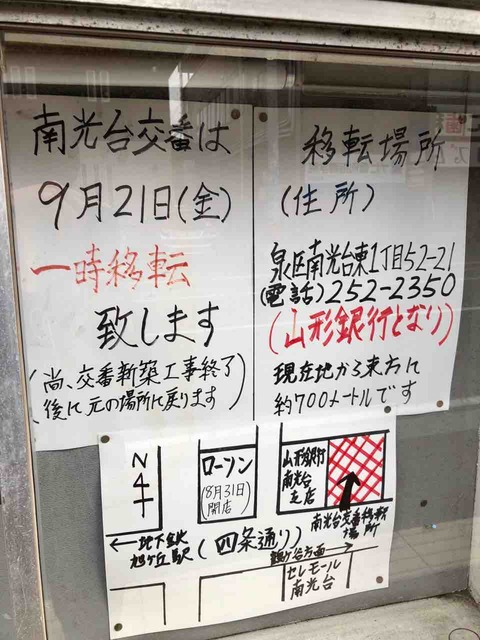 南光台交番は
9月21日(金)
一時移転
致します
(尚、交番新築工事終了
後に元の場所に戻ります)
移転場所
(住所)
泉区南光台東1丁目52-21
(電話)252-2350
(山形銀行となり)
現在地から東方に
約700メートルです
N
ローソン
(8月31日
開店)
山形銀行
南光台
支店
南光台交番移転
場所
←地下鉄
旭ヶ丘駅
(四条通り)
鶴ヶ谷方面→
セレモール
南光台